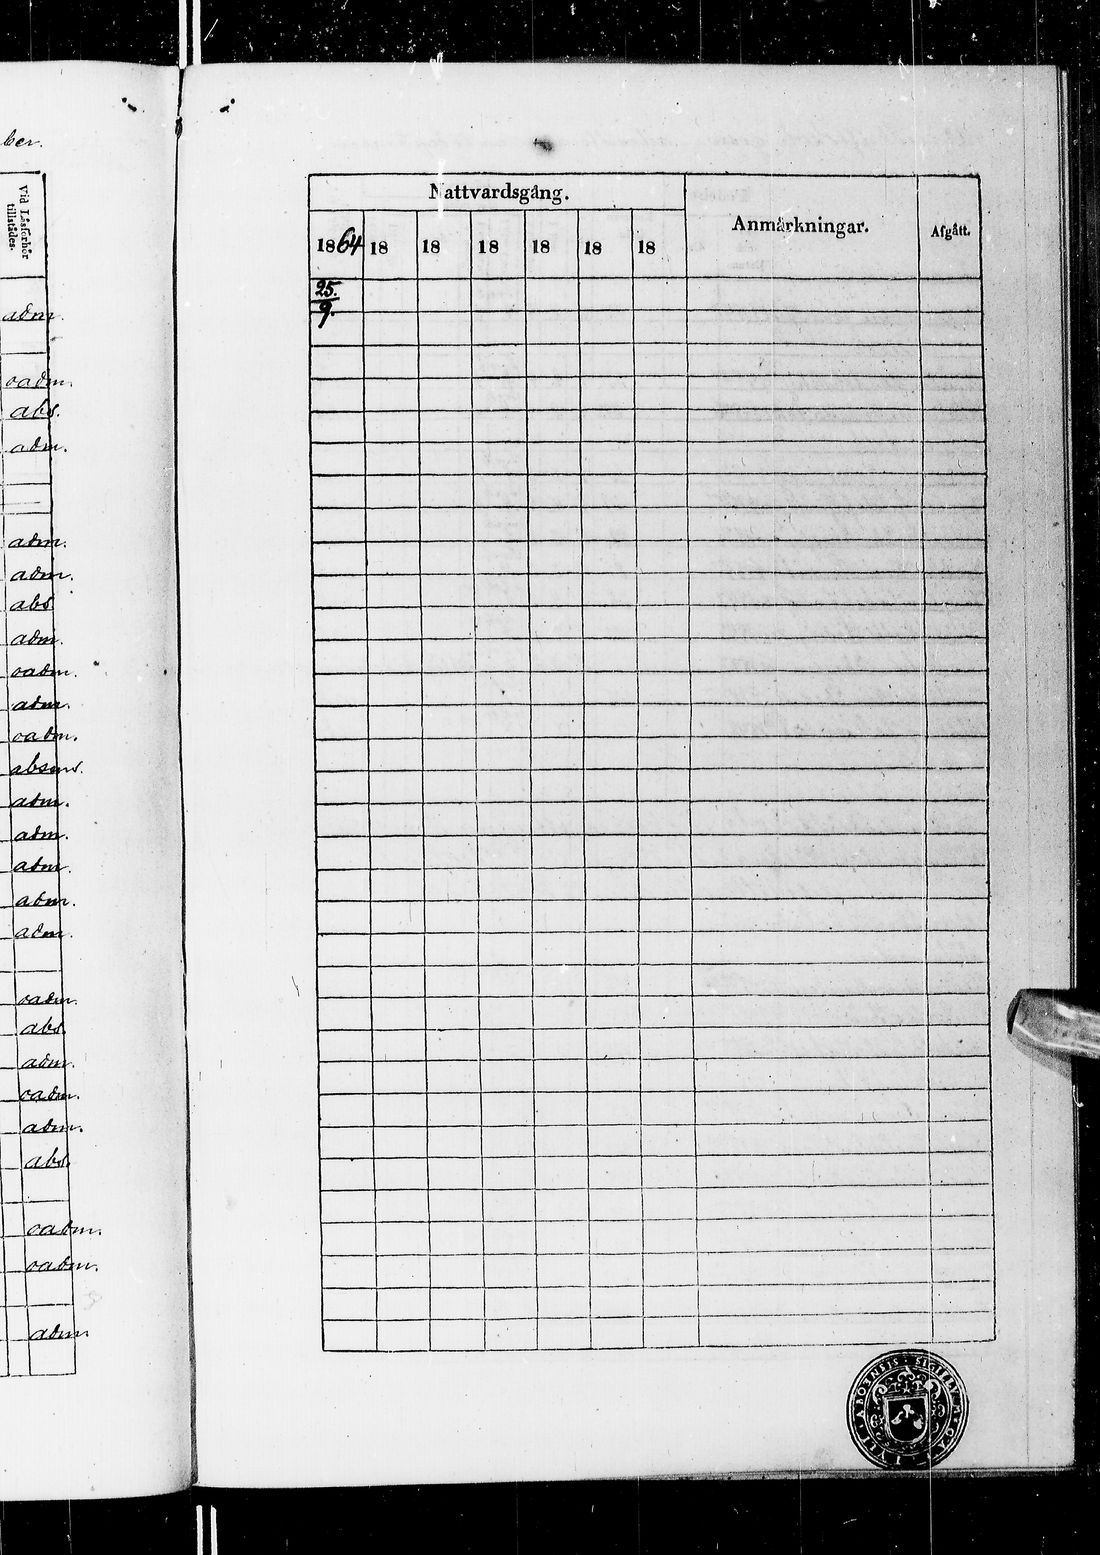 ber.
Vid Läsförhör
tillstådes.
adm.
oadm.
abs.
adm.
adm.
adm.
abs
adm.
oadm.
adm.
oadm.
absens.
adm.
adm.
adm.
adm.
adm.
oadm.
abs.
adm.
oadm.
adm.
abs.
oadm.
oadm.
adm
Nattvardsgång.
Anmärkningar.
Afgått.
1864 18 18 18 18 18 18
25.
9.
ABOENSIS · SIGILLUM